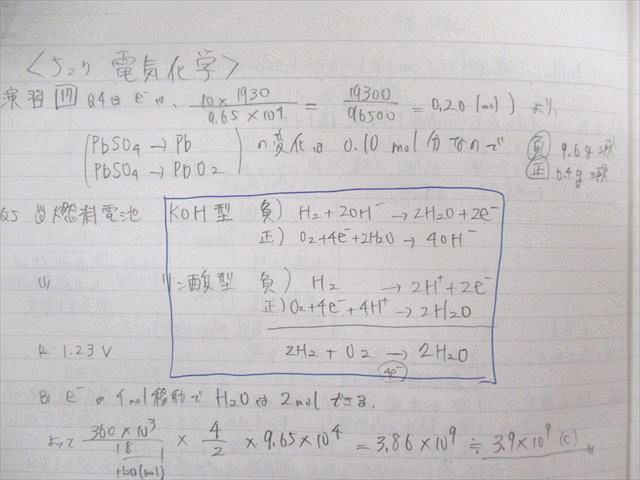 〈5.27 電気化学〉
演習 17 Q4⑧ e⁻は、 10×1930/9.65×10⁴ = 19300/96500 = 0.20 (mol) より
PbSO4 → Pb
PbSO4 → PbO2
の変化は 0.10 mol分なので
負 9.6g減
正 6.4g減
Q5 燃料電池 KOH型 負) H2+2OH⁻ → 2H2O+2e⁻
正) O2+4e⁻+2H2O → 4OH⁻
(1) リン酸型 負) H2 → 2H⁺+2e⁻
正) O2+4e⁻+4H⁺ → 2H2O
2H2 + O2 → 2H2O
4e⁻
1.23 V
e⁻の4mol移動で H2Oは 2molできる.
よって 360×10³/18 × 4/2 × 9.65×10⁴ = 3.86×10⁹ ≒ 3.9×10⁹ (C)